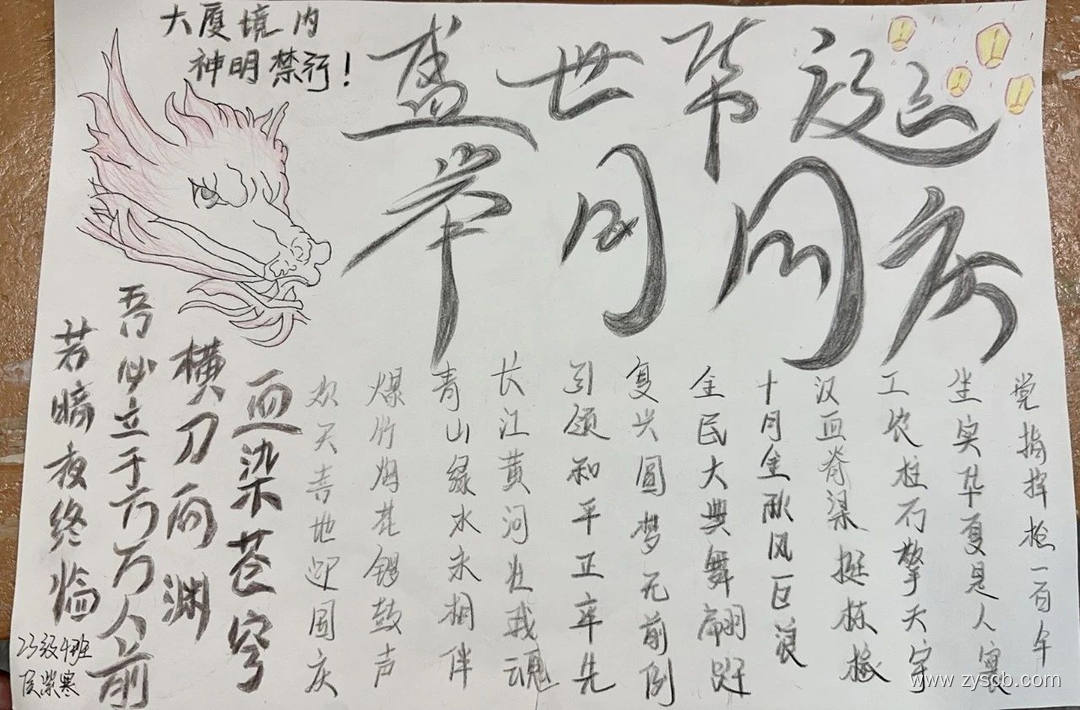 大厦境内
神明禁行！
盛世华诞
举国同庆
党指挥枪一百年
坐实华夏是人寰
工农柱石擎天宇
汉血脊梁挺栋椽
十月金秋风巨浪
全民大典舞翩跹
复兴圆梦无前例
引领和平正率先
长江黄河壮我魂
青山绿水永相伴
爆竹烟花锣鼓声
欢天喜地迎国庆
若暗夜终临
吾必立于万万人前
横刀向渊
血染苍穹
23级4班
www.zyscb.com